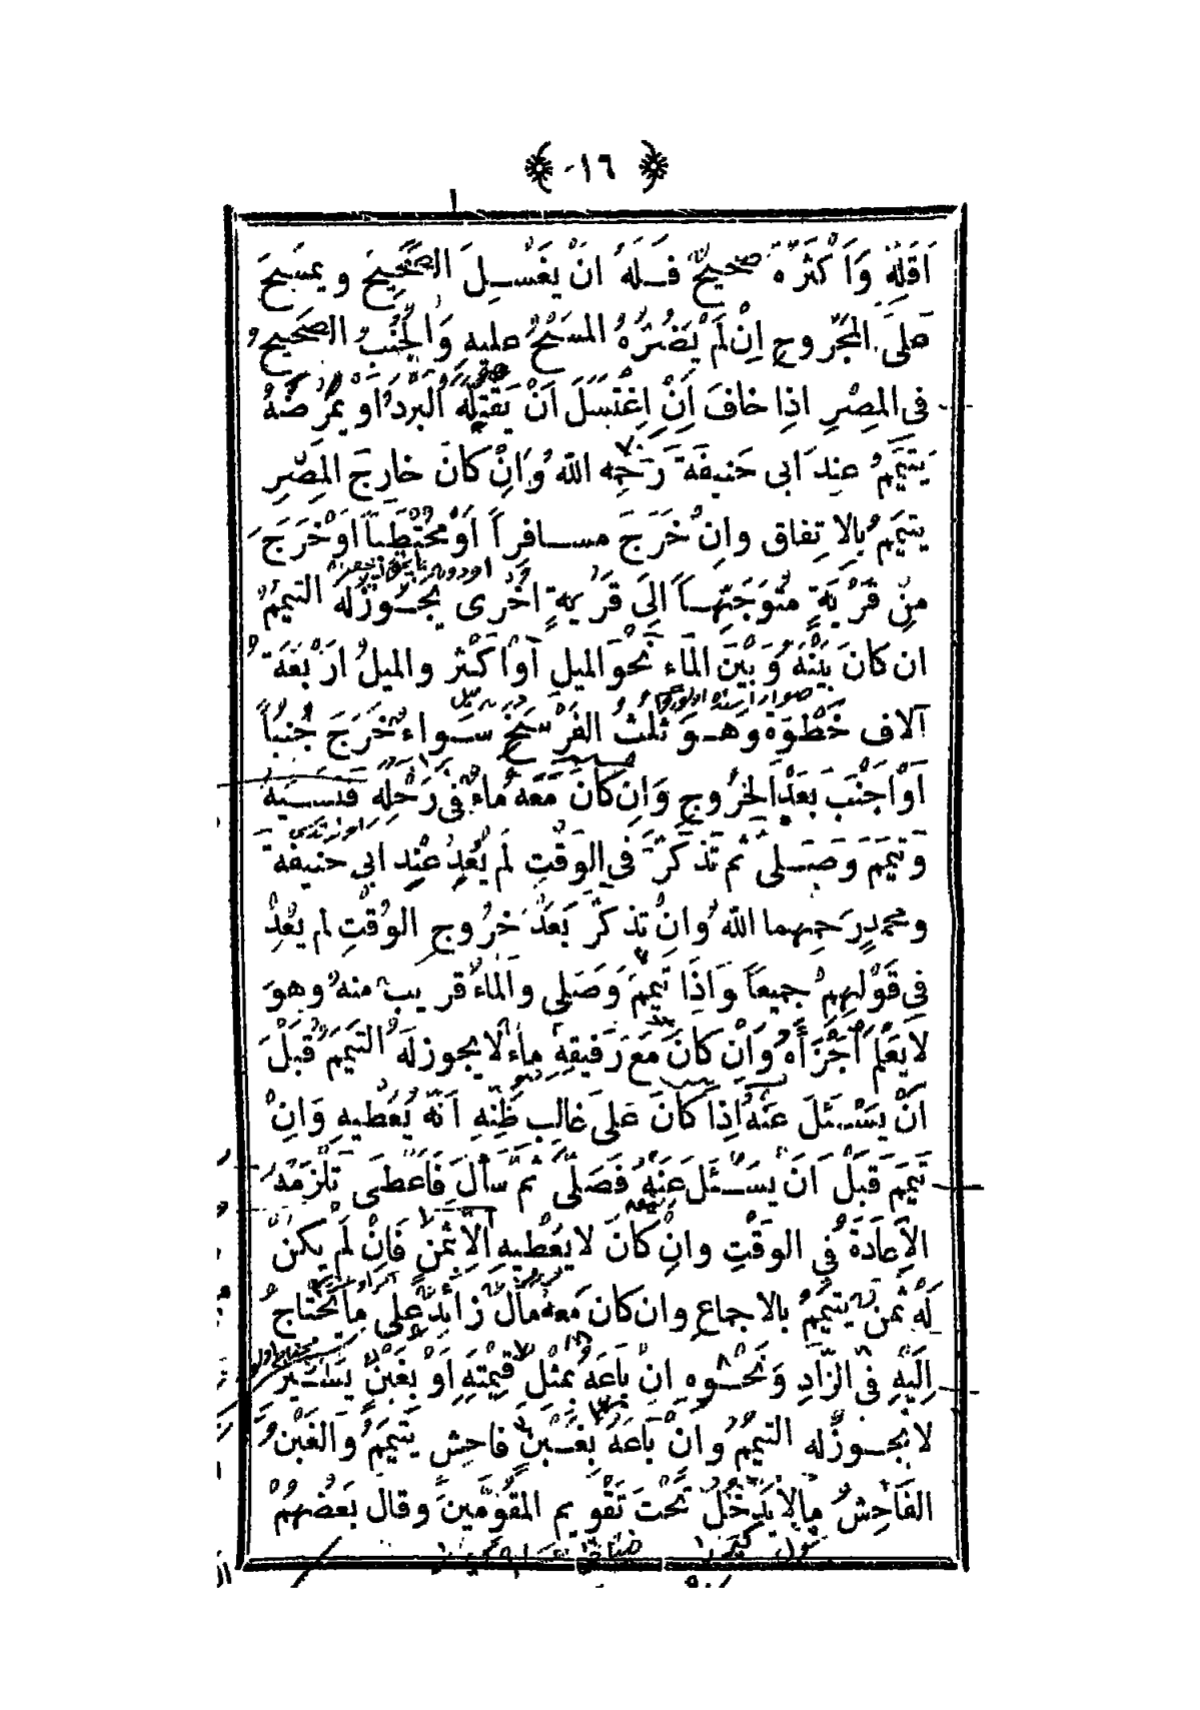 ﴿ ١٦ ﴾
اَقَلِّهِ وَاَكْثَرُهُ صَحِيحٌ فَلَهُ اَنْ يَغْسِلَ الصَّحِيحَ وَيَمْسَحَ
عَلَى الْمَجْرُوحِ اِنْ لَمْ يَضُرَّهُ الْمَسْحُ عليهِ وَالْجُنُبُ الصَّحِيحُ
فِى الْمِصْرِ اِذَا خَافَ اِنِ اغْتَسَلَ اَنْ يَقْتُلَهُ الْبَرْدُ اَوْ يُمْرِضَهُ
يَتَيَمَّمُ عِنْدَ اَبى حَنيفَةَ رَحِمَهُ اللّٰهُ وَاِنْ كَانَ خَارِجَ الْمِصْرِ
يتيَمَّمُ بِالْاِتِفَاقِ وَاِنْ خَرَجَ مُسَافِراً اَوْ مُحْتَطِباً اَوْ خَرَجَ
مِنْ قَرْيَةٍ مُتَوَجِّهاً اِلَى قَرْيَةٍ اُخْرى يَجُوزُ لَهُ التيمّمُ
ان كَانَ بَيْنَهُ وَبَيْنَ الْمَاءِ نَحْوَ الميلِ اَوْ اَكْثَرَ والميلُ اَرْبَعَةُ
آلافِ خَطْوَةٍ وَهُوَ ثُلُثُ الْفَرْسَخِ سَوَاءٌ خَرَجَ جُنُباً
اَوْ اَجْنَبَ بَعْدَ الْخُرُوجِ وَاِنْ كَانَ مَعَهُ مَاءٌ فِى رَحْلِهِ فَنَسِيَهُ
وَتَيَمَّمَ وَصَلَّى ثُمَّ تَذَكَّرَ فِى الْوَقْتِ لَمْ يُعِدْ عِنْدَ ابى حنيفةَ
ومحمدٍ رَحِمَهما اللّٰهُ وَاِنْ تَذَكَّرَ بَعْدَ خُرُوجِ الوَقْتِ لم يُعِدْ
فِى قَوْلِهِمْ جميعاً وَاِذَا تَيَمَّمَ وَصَلى وَالْمَاءُ قَريبٌ منهُ وهو
لَا يَعْلَمُ اَجْزَأَهُ وَاِنْ كَانَ مَعَ رَفيقِهِ مَاءٌ لَا يجوز لَهُ التَّيَمُّمُ قَبْلَ
اَنْ يَسْئَلَ عَنْهُ اِذَا كَانَ عَلَى غَالِبِ ظَنِّهِ اَنَّهُ يُعْطيهِ وَاِنْ
تَيَمَّمَ قَبْلَ اَنْ يَسْئَلَ عَنْهُ فَصَلَّى ثُمَّ سَأَلَ فَاَعْطَى تَلْزَمُهُ
الْاِعَادَةُ فِى الوَقْتِ وَاِنْ كَانَ لا يُعْطيهِ اِلَّا بِثَمَنٍ فَاِنْ لَمْ يَكُنْ
لَهُ ثَمَنٌ يَتَيَمَّمُ بالاجماعِ وان كان مَعَهُ مَالٌ زَائِدٌ عَلَى مَا يَحْتَاجُ
اِلَيْهِ فِى الزَّادِ وَنَحْوِهِ اِنْ بَاعَهُ بِمِثْلِ قِيمَتِهِ اَوْ بِغَبْنٍ يَسيرٍ
لا يَجُوزُ له التيمّمُ وَاِنْ بَاعَهُ بِغَبْنٍ فَاحِشٍ يَتَيَمَّمُ وَالغَبْنُ
الفَاحِشُ مَالَا يَدْخُلُ تَحْتَ تَقْويمِ المُقَوِّمينَ وقال بَعْضُهُمْ